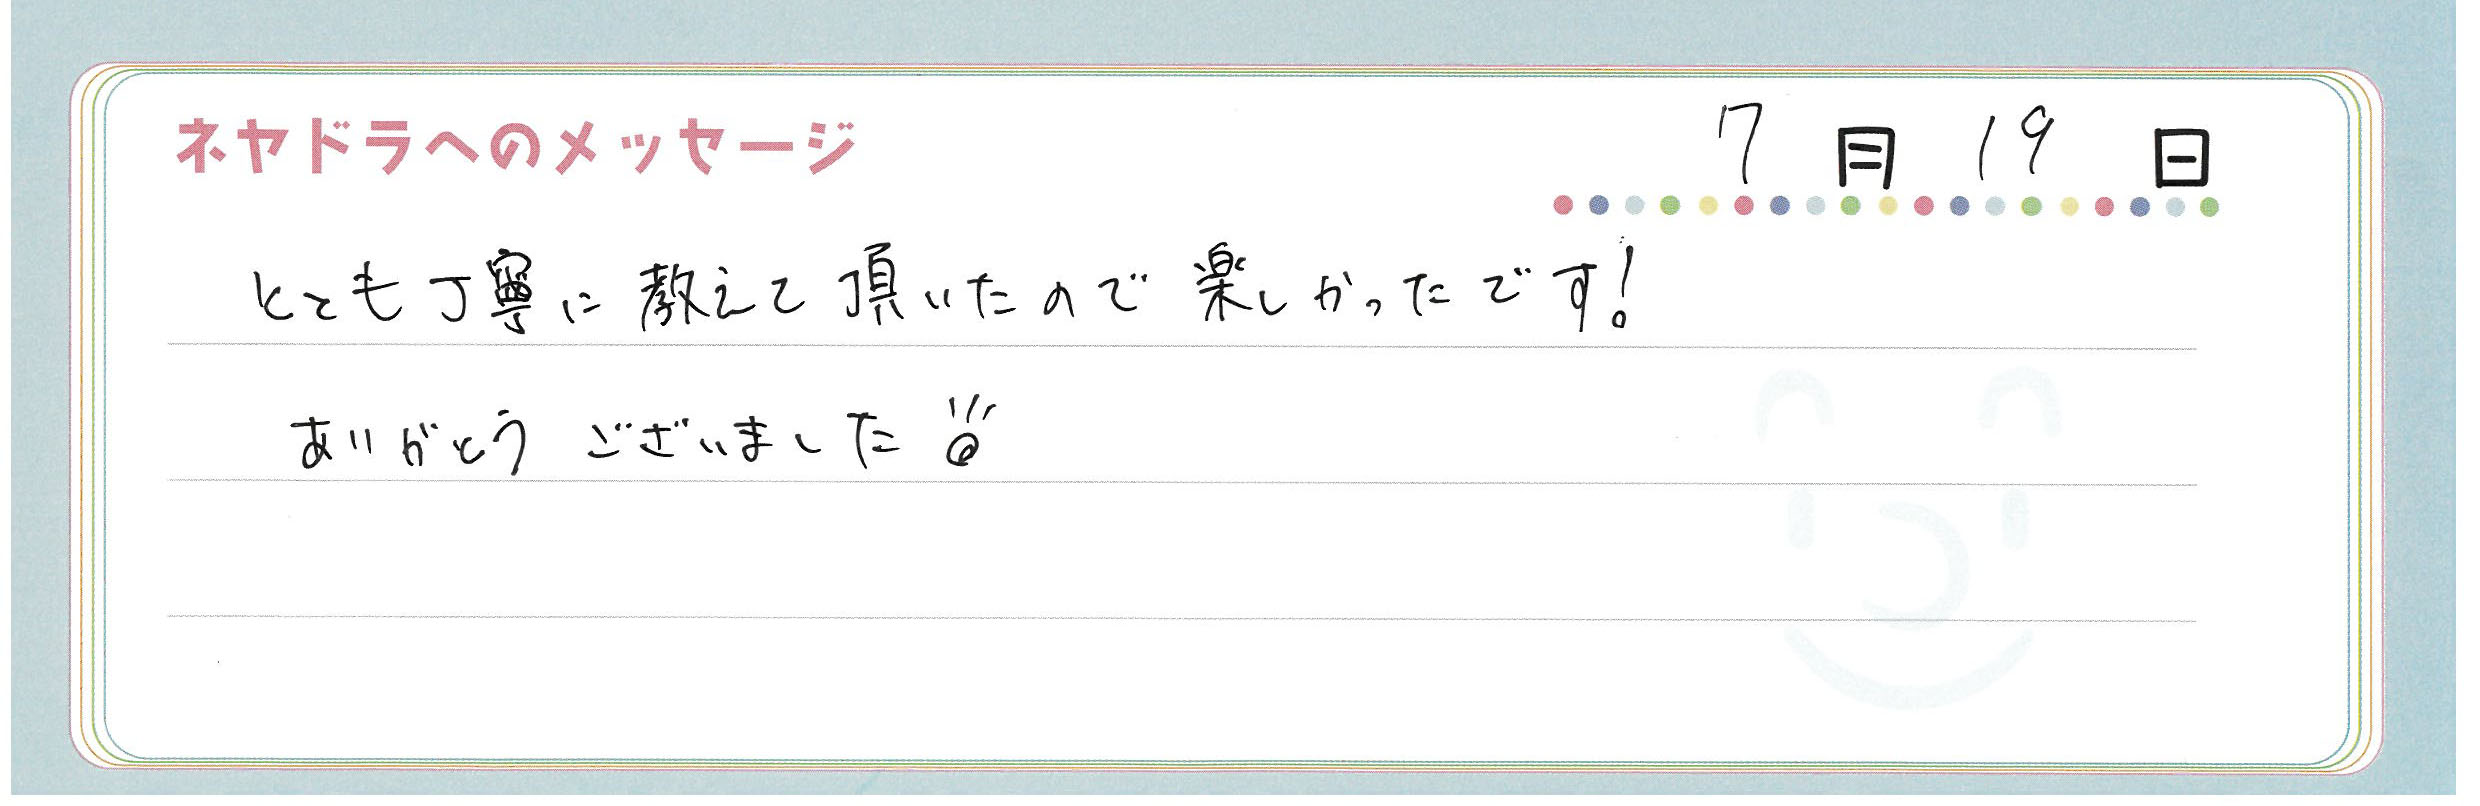 ネヤドラへのメッセージ
7月19日
とても丁寧に教えて頂いたので楽しかったです!
ありがとうございました